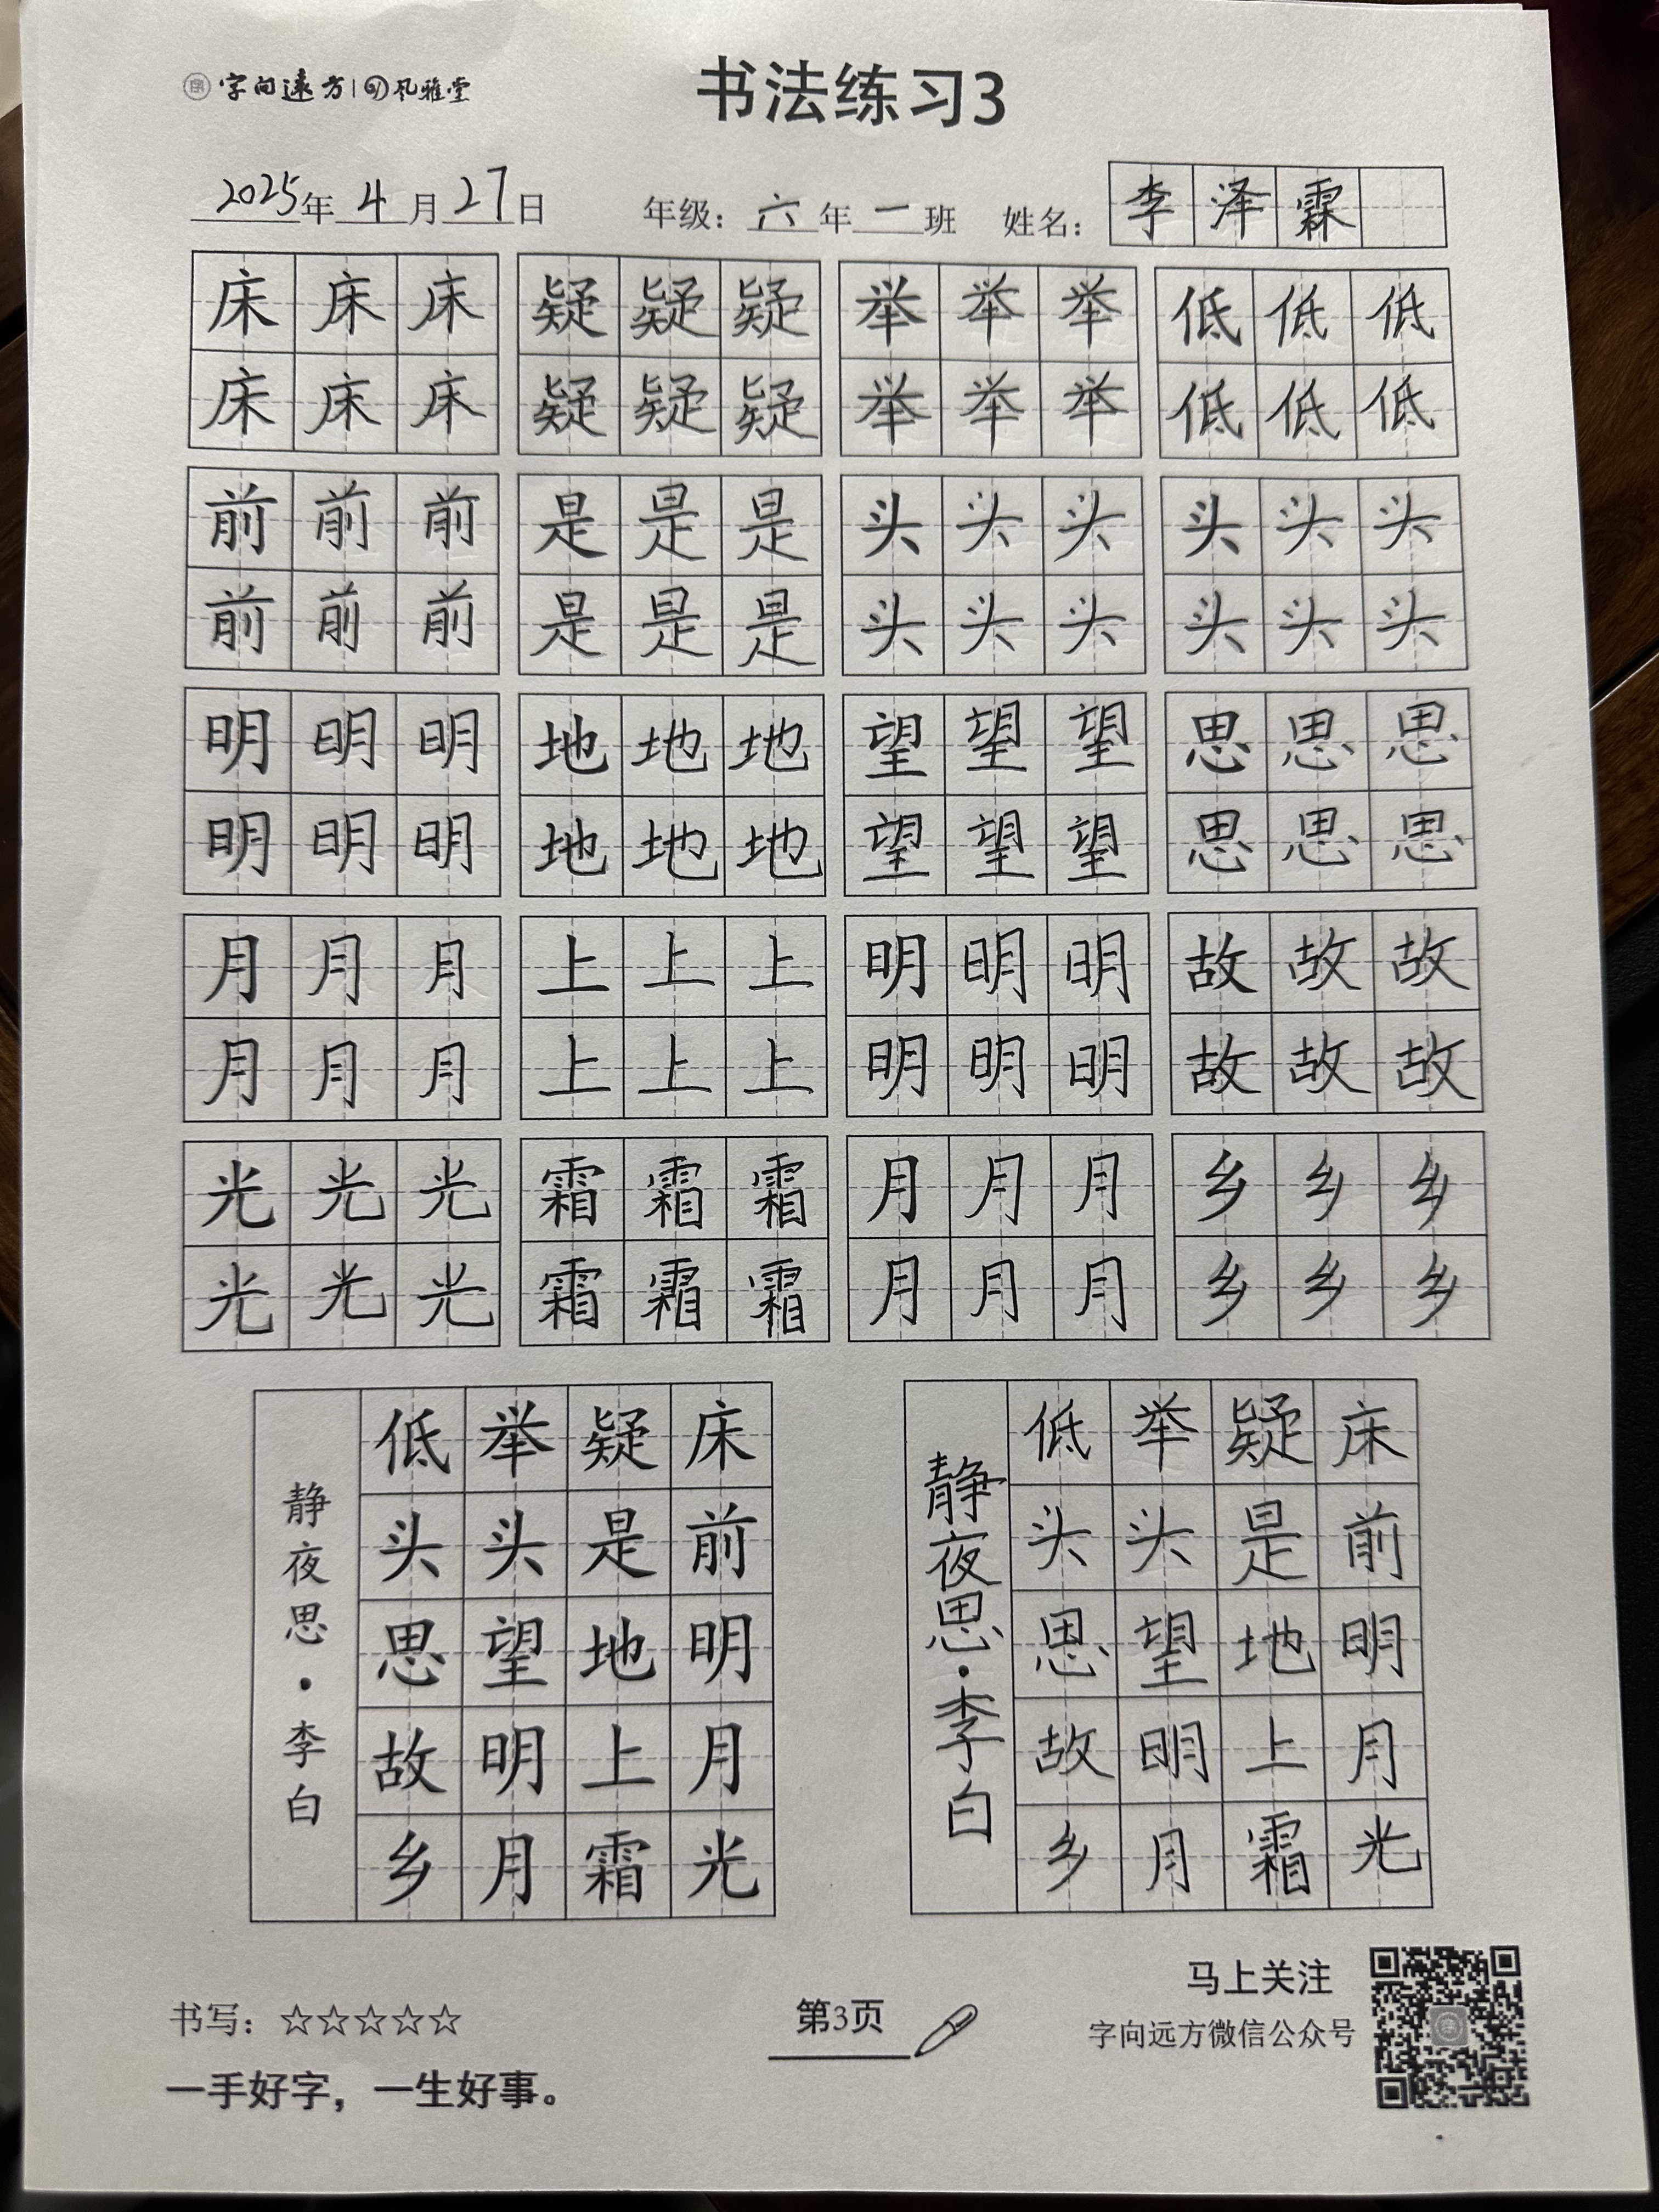 字向远方 风雅堂
书法练习3
2025年4月27日 年级：六年一班 姓名：李泽霖
床床床 疑疑疑 举举举 低低低
床床床 疑疑疑 举举举 低低低
前前前 是是是 头头头 头头头
前前前 是是是 头头头 头头头
明明明 地地地 望望望 思思思
明明明 地地地 望望望 思思思
月月月 上上上 明明明 故故故
月月月 上上上 明明明 故故故
光光光 霜霜霜 月月月 乡乡乡
光光光 霜霜霜 月月月 乡乡乡
床前明月光
疑是地上霜
举头望明月
低头思故乡
静夜思·李白
床前明月光
疑是地上霜
举头望明月
低头思故乡
静夜思·李白
书写：☆☆☆☆☆
一手好字，一生好事。
第3页
马上关注
字向远方微信公众号